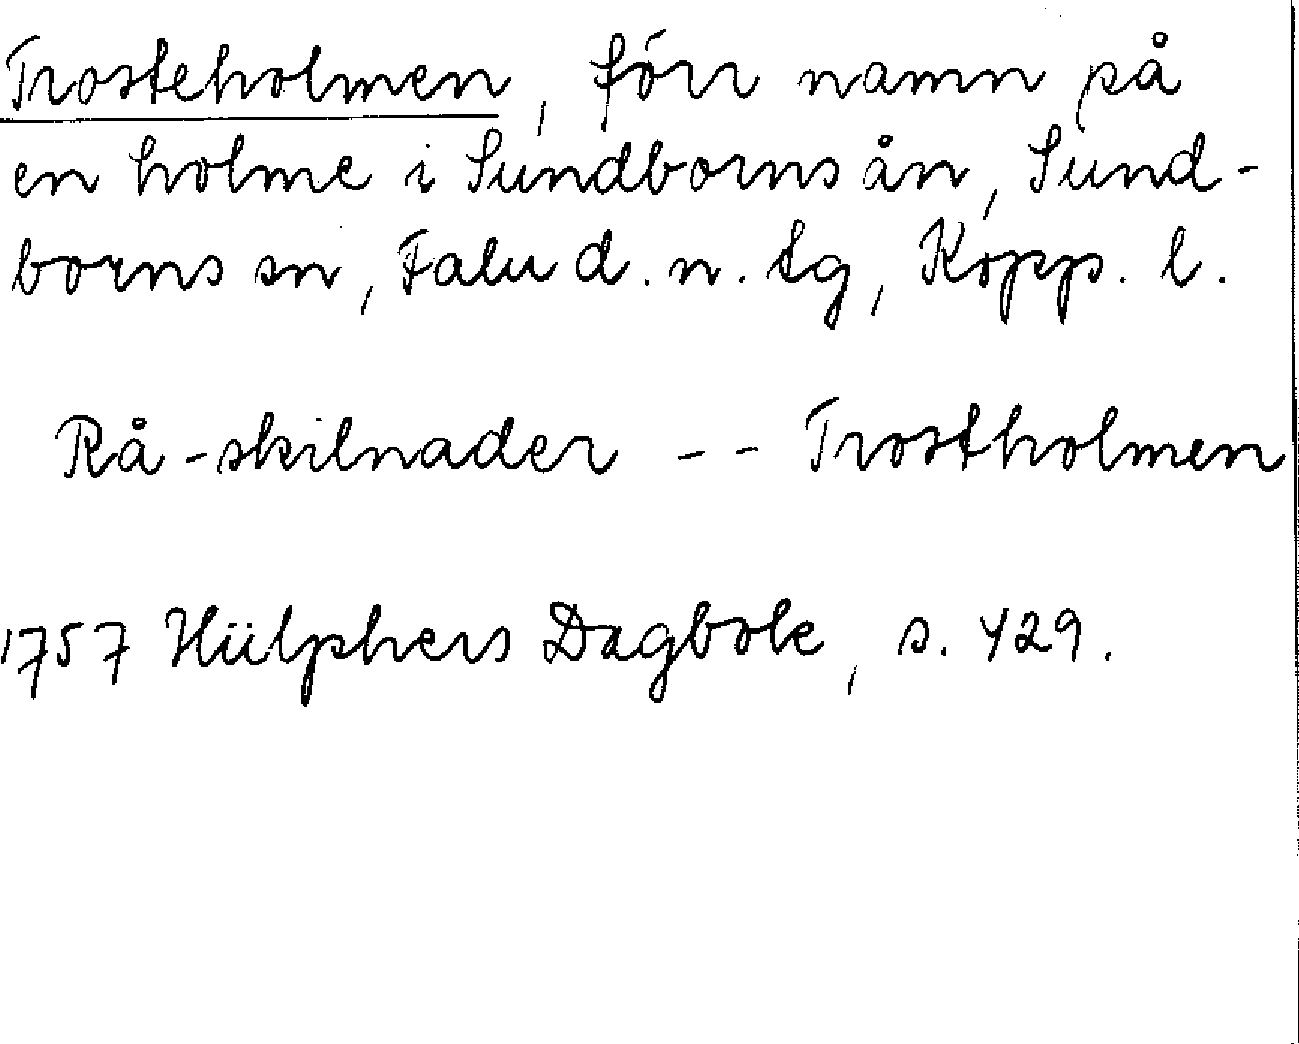 Trosteholmen, förr namn på
en holme i Sundbornsån, Sund-
borns sn, Falu d. n. tg, Kopp. l.
Rå-skilnader -- Trostholmen
1757 Hülphers Dagbok, s. 429.